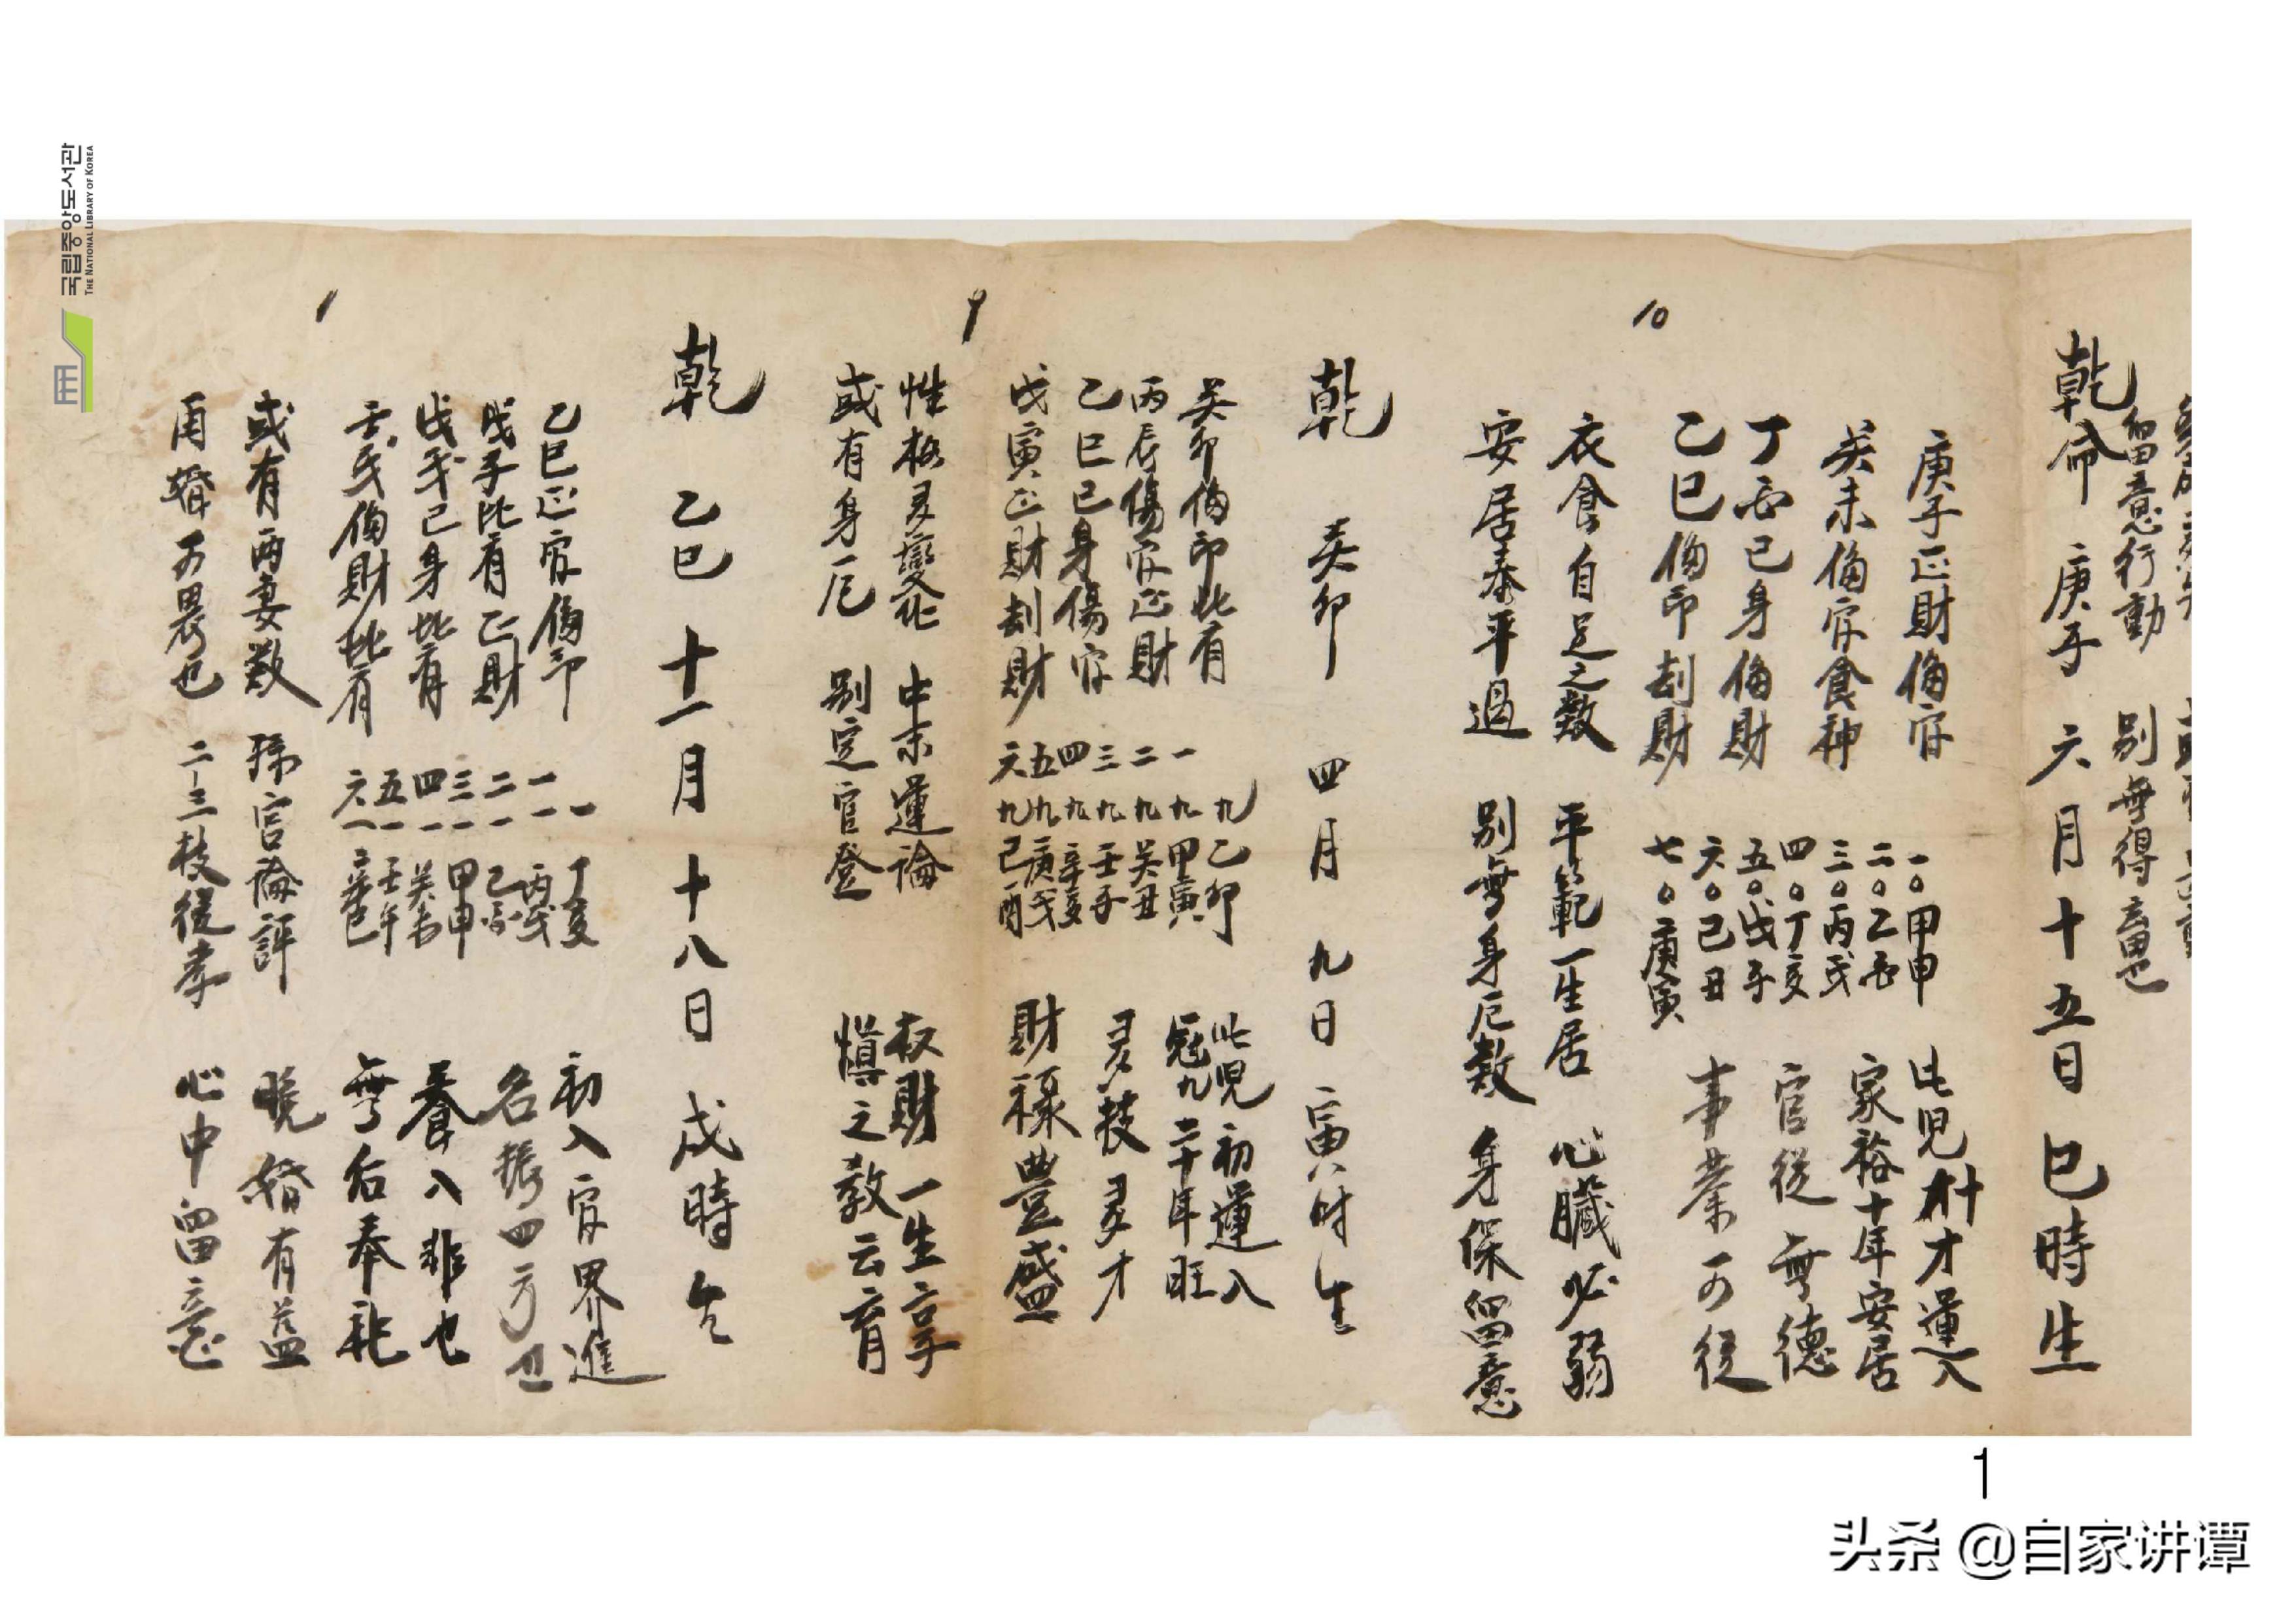 留意行動　別無得意也
乾命　庚子　六月十五日　巳時生
庚子正財偏官　一〇甲申　此児
癸未偏官食神　二〇乙酉　家裕十年安居
丁酉己身偏財　三〇丙戌　官從無德
乙巳偏印劫財　四〇丁亥　事業可從
五〇戊子
六〇己丑
七〇庚寅
衣食自足之数　平範一生居　心臟必弱
安居泰平過　別無身厄数　身保留意
10
乾　癸卯　四月　九日　寅時生
癸卯偏印比有　九乙卯　此児初運入
丙辰傷官正財　一九甲寅　冠九二十年旺
乙巳己身傷官　二九癸丑　多技多才
戊寅正財劫財　三九壬子　財祿豊盛
四九辛亥
五九庚戌
六九己酉
性格多變化　中末運論　权財一生享
或有身厄　別定官登　慎之教云育
9
乾　乙巳　十一月　十八日　戌時生
乙巳正官偏印　一丁亥　初入官界進
戊子比有正財　一一丙戌　名振四方
戊戌己身比有　二一乙酉　養入非也
壬戌偏財比有　三一甲申　無后奉祀
四一癸未
五一壬午
六一辛巳
或有両妻数　孫官論評　晚婚有益
再婚可畏也　二三枝從孝　心中留意
국립중앙도서관
THE NATIONAL LIBRARY OF KOREA
1
头条 @自家讲谭